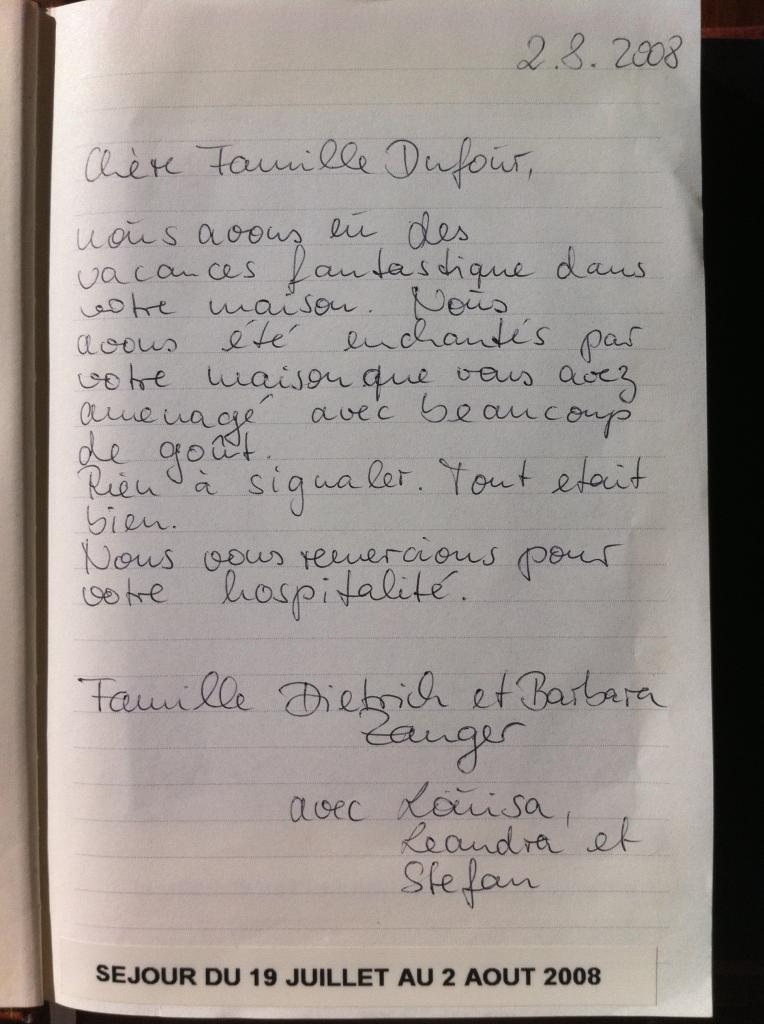 2.8.2008
Chère Famille Dufour,
nous avons eu des
vacances fantastique dans
votre maison. Nous
avons été enchantés par
votre maison que vous avez
amenagé avec beaucoup
de goût.
Rien à signaler. Tout etait
bien.
Nous vous remercions pour
votre hospitalité.
Famille Dietrich et Barbara
Zanger
avec Louisa,
Leandra et
Stefan
SEJOUR DU 19 JUILLET AU 2 AOUT 2008